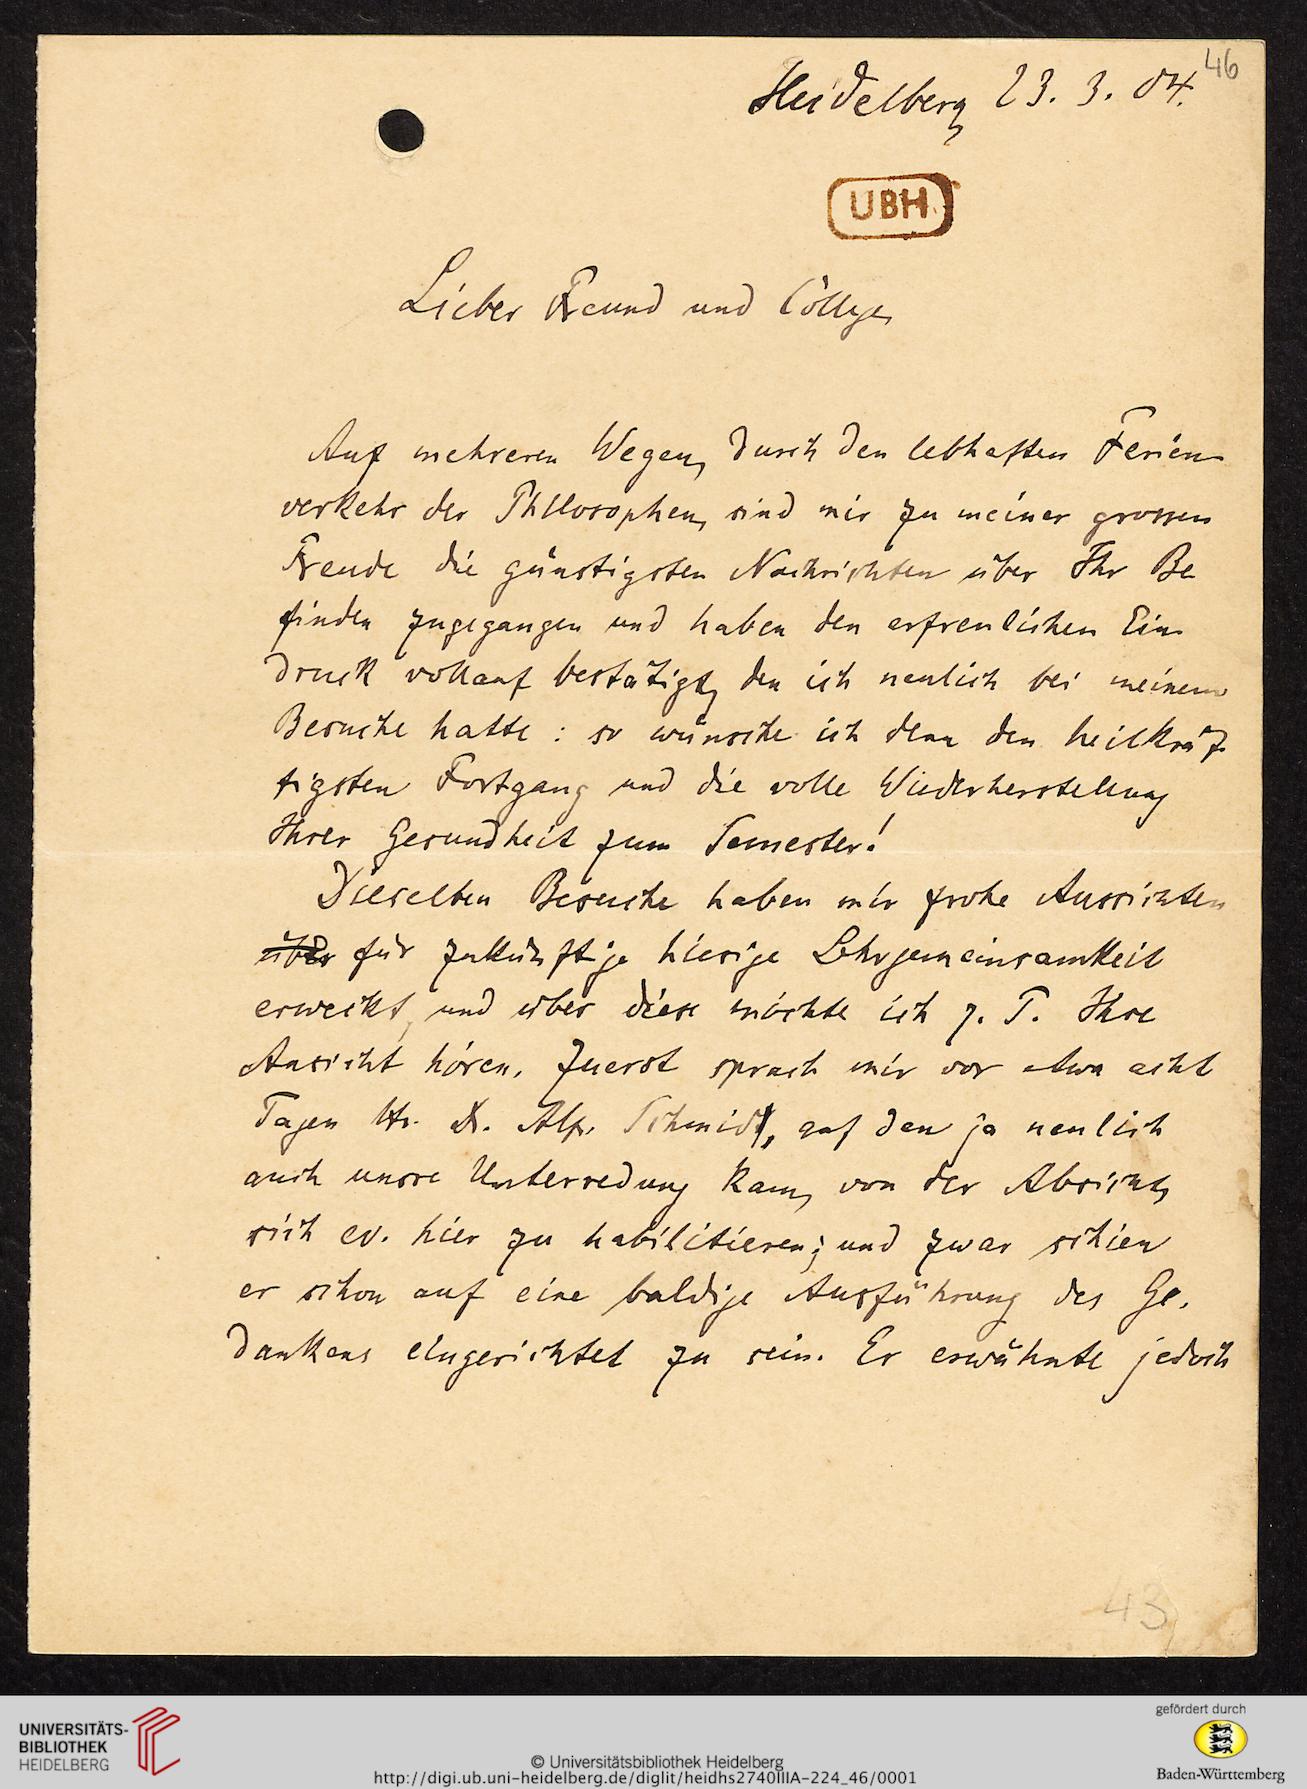 46
Heidelberg 23. 3. 04.
UBH
Lieber Freund und College,
Auf mehreren Wegen, durch den lebhaften Ferien-
verkehr der Philosophen, sind mir zu meiner grossen
Freude die günstigsten Nachrichten über Ihr Be
finden zugegangen und haben den erfreulichen Ein-
druck vollauf bestätigt, den ich neulich bei meinem
Besuche hatte: so wünsche ich denn den heilkräf-
tigsten Fortgang und die volle Wiederherstellung
Ihrer Gesundheit zum Semester!
Dieselben Besuche haben mir frohe Aussichten
über für zukünftige hiesige Lehrgemeinsamkeit
erweckt, und über diese möchte ich z. T. Ihre
Ansicht hören. Zuerst sprach mir vor etwa acht
Tagen Hr. Dr. Alf. Schmidt, auf den ja neulich
auch unsre Unterredung kam, von der Absicht,
sich ev. hier zu habilitieren; und zwar schien
er schon auf eine baldige Ausführung des Ge-
dankens eingerichtet zu sein. Er erwähnte jedoch
43
UNIVERSITÄTS-
BIBLIOTHEK
HEIDELBERG
© Universitätsbibliothek Heidelberg
http://digi.ub.uni-heidelberg.de/diglit/heidhs2740IIIA-224_46/0001
gefördert durch
Baden-Württemberg